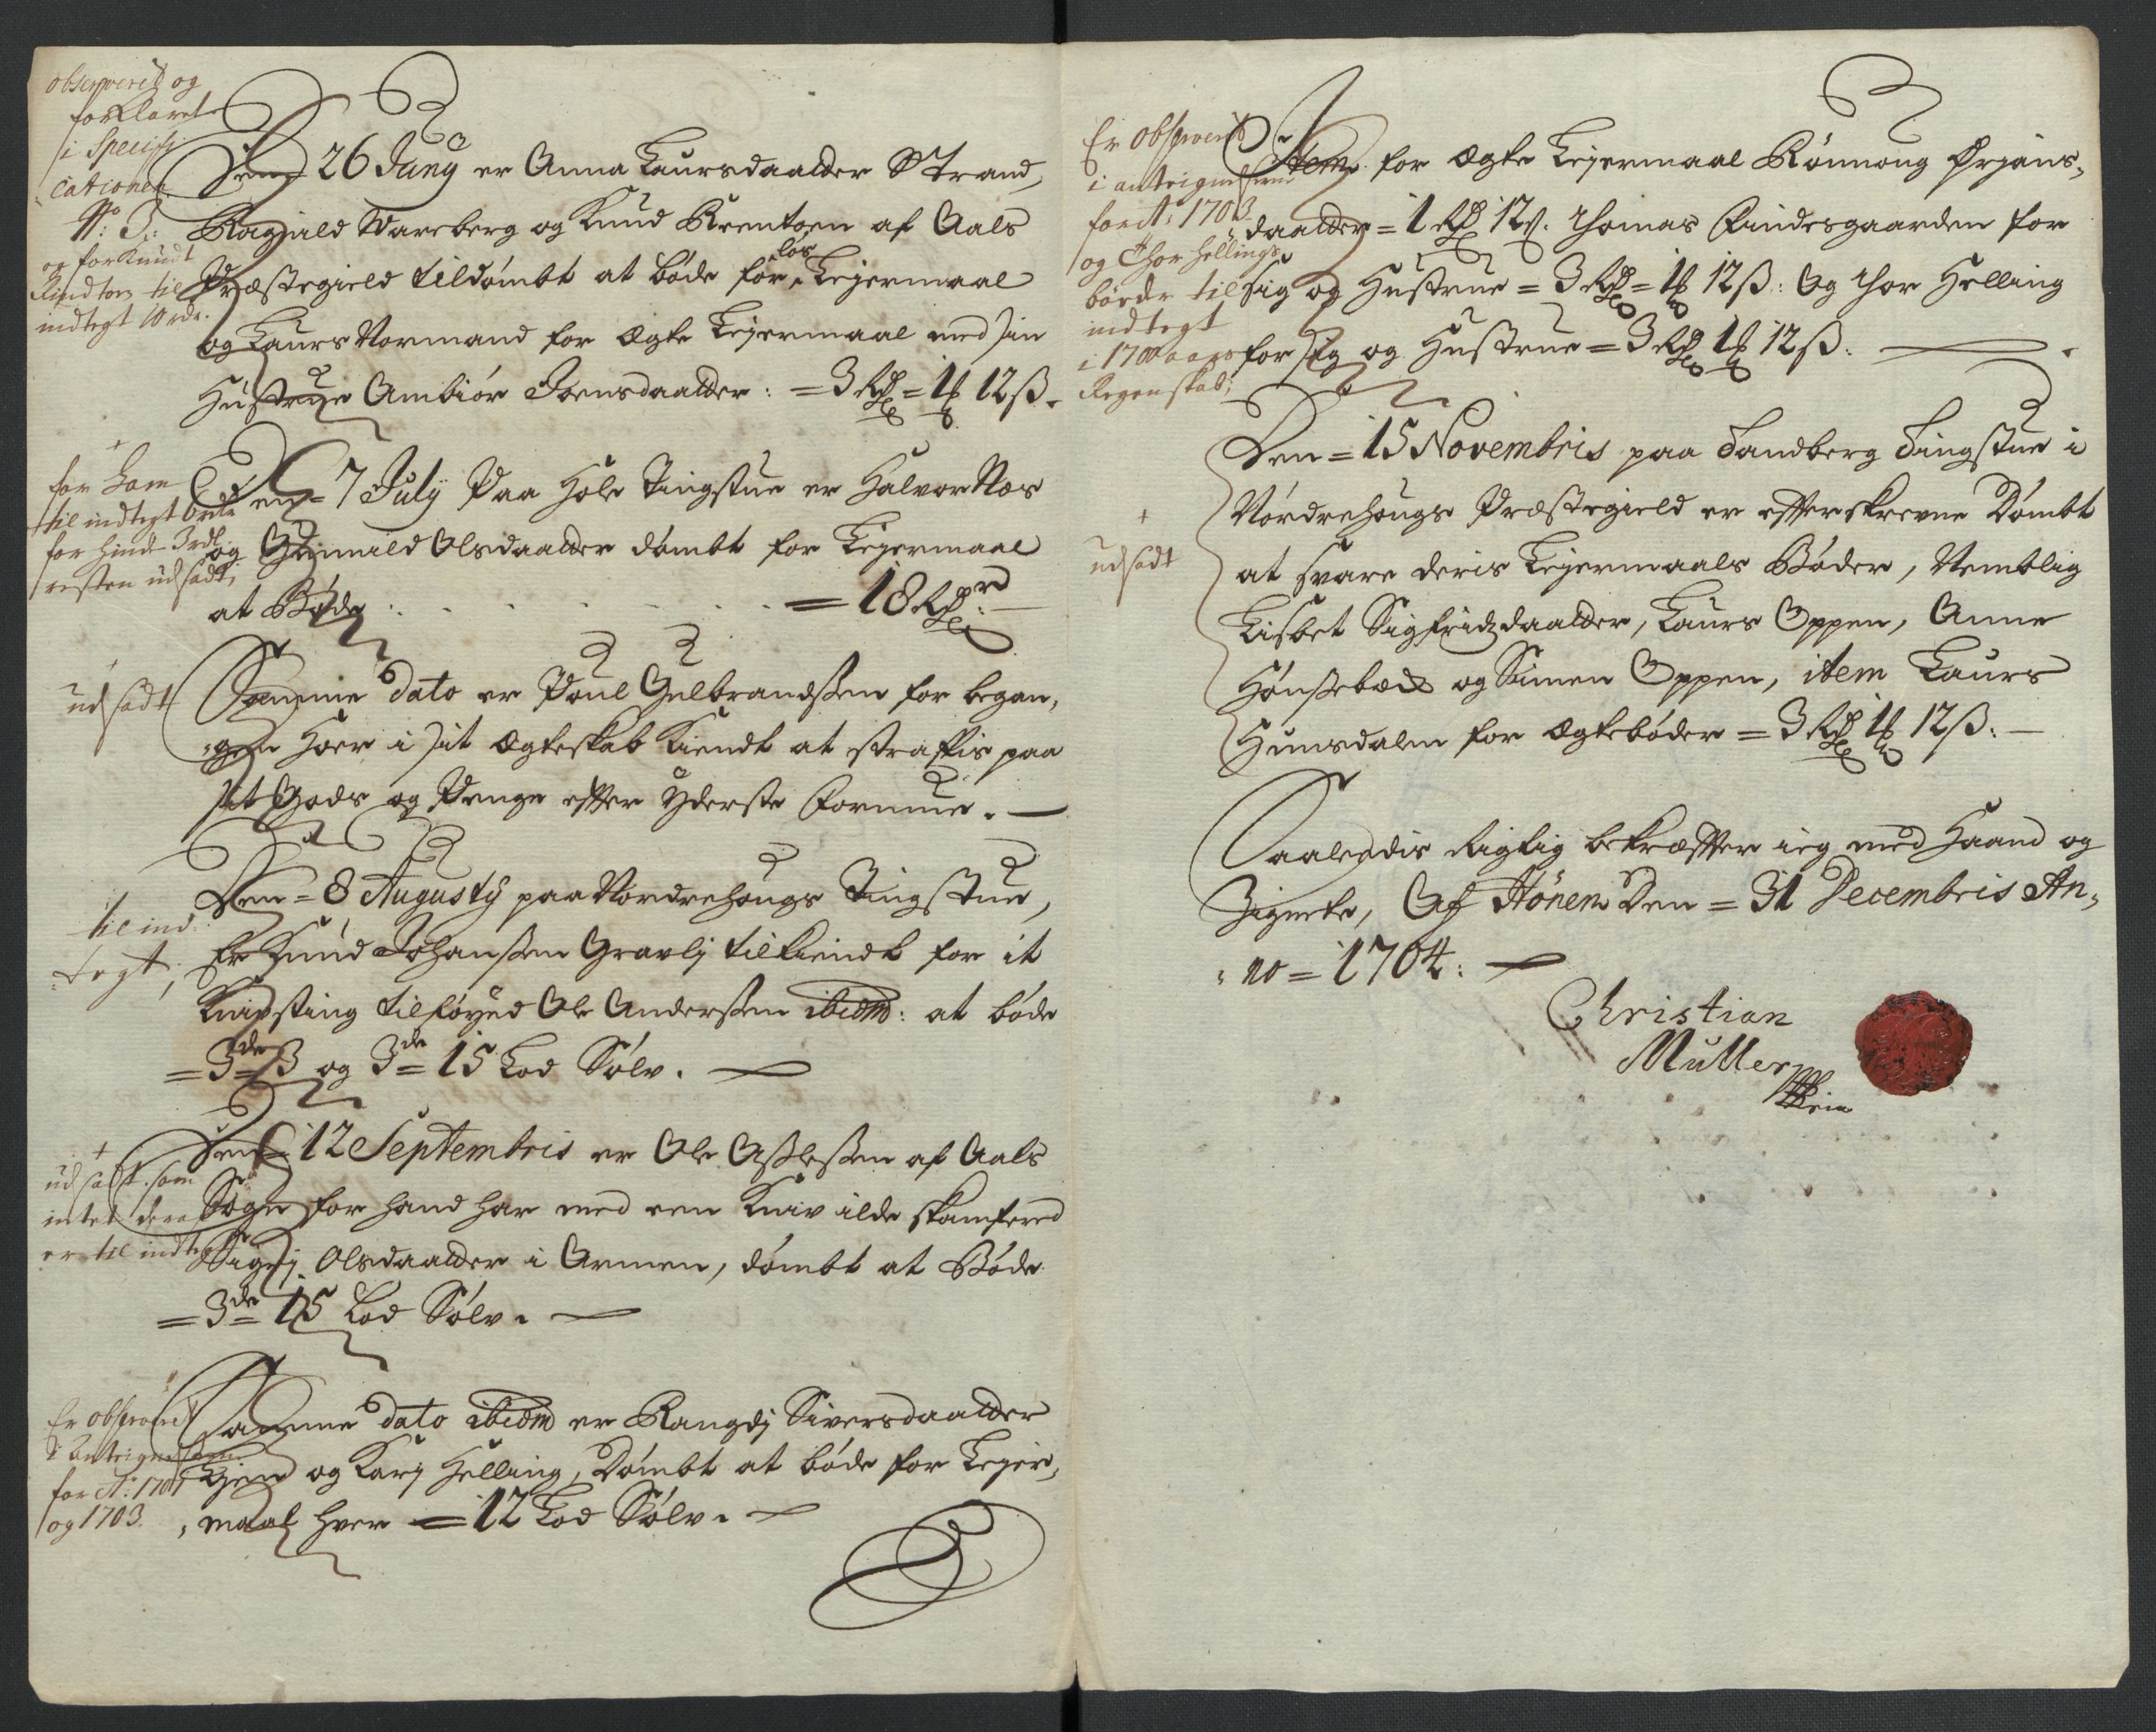 observerit og
forklaret
i Specifi
cationen
No: 3:
og for Knudt
Rindtoen til
indtegt 10 rdr.
Den 26 Juny er Anna Laursdaatter Strand,
Ragnild Wareberg og Knud Reentoen af Aals
Præstegield tildømbt at bøde for løs Leyermaal
og Laurs Normand for Ægte Leyermaal med sin
Hustrue Ambiør Joensdaatter: = 3 Rdr = 1 12 ß.
for ham
til indtegt
for hinde 3 rdr
resten udsadt
Den = 7 July Paa Hole Tingstue er Halvor Næs
og Gunnild Olsdaatter dømbt for Leyermaal
at Bøde . . . . . . . = 18 Rdr
udsadt
Samme dato er Poul Gulbrandssen for began,
"gen Hoer i sit Ægteskab kiendt at straffis paa
sit Gods og Penge effter Yderste Formue. —
til ind
tegt,
Den = 8 Augusty paa Nordrehougs Tingstue,
Er Knud Johanssen Gravlj tilkiendt for it
Knifsting tilføyed Ole Anderssen ibidm: at bøde
= 3de = 3 og 3de = 15 Lod Sølv. —
udsadt som
intet deraf
er til indtegt
Den = 12 Septembris er Ole Aslessen af Aals
Sogn for hand har med een Kniv ilde skamfered
Sigrj Olsdaatter i Armen, dømbt at Bøde
= 3de = 15 Lod Sølv. —
Er observerit
i Anteignelserne
for Ao: 1701
og 1703.
Samme dato ibidm er Rangdj Siversdaatter
og Karj Helling, Dømbt at bøde for Leyer,
"maal hver = 12 Lod Sølv. —
Er observerit
i anteignelserne
for A: 1703
og Thor Hellings
bøeder til
indtegt
i 1700 aars
Regenskab;
Item for Ægte Leyermaal Rønnoug Ørjans,
"daatter = 1 Rdr 12 ß. Thomas Findesgaarden for
sig og Hustrue = 3 Rdr = 1 12 ß: Og Thor Helling
for sig og Hustrue = 3 Rdr 1 12 ß. —
udsadt
Den = 15 Novembris paa Sandberg Tingstue i
Nordrehougs Præstegield er effterskrevne Dømbt
at svare deris Leyermaals Bøder, Nemblig
Lisbet Sigfridzdaatter, Laurs Oppen, Anne
Hønssebæck og Simen Oppen, item Laurs
Hunsdalen for Ægtebøder = 3 Rdr 1 12 ß. —
Saaledis Rigtig bekræffter ieg med Haand og
Zignete, Af Hønen Den = 31 Decembris An,
"no = 1704: —
Christian
Muller